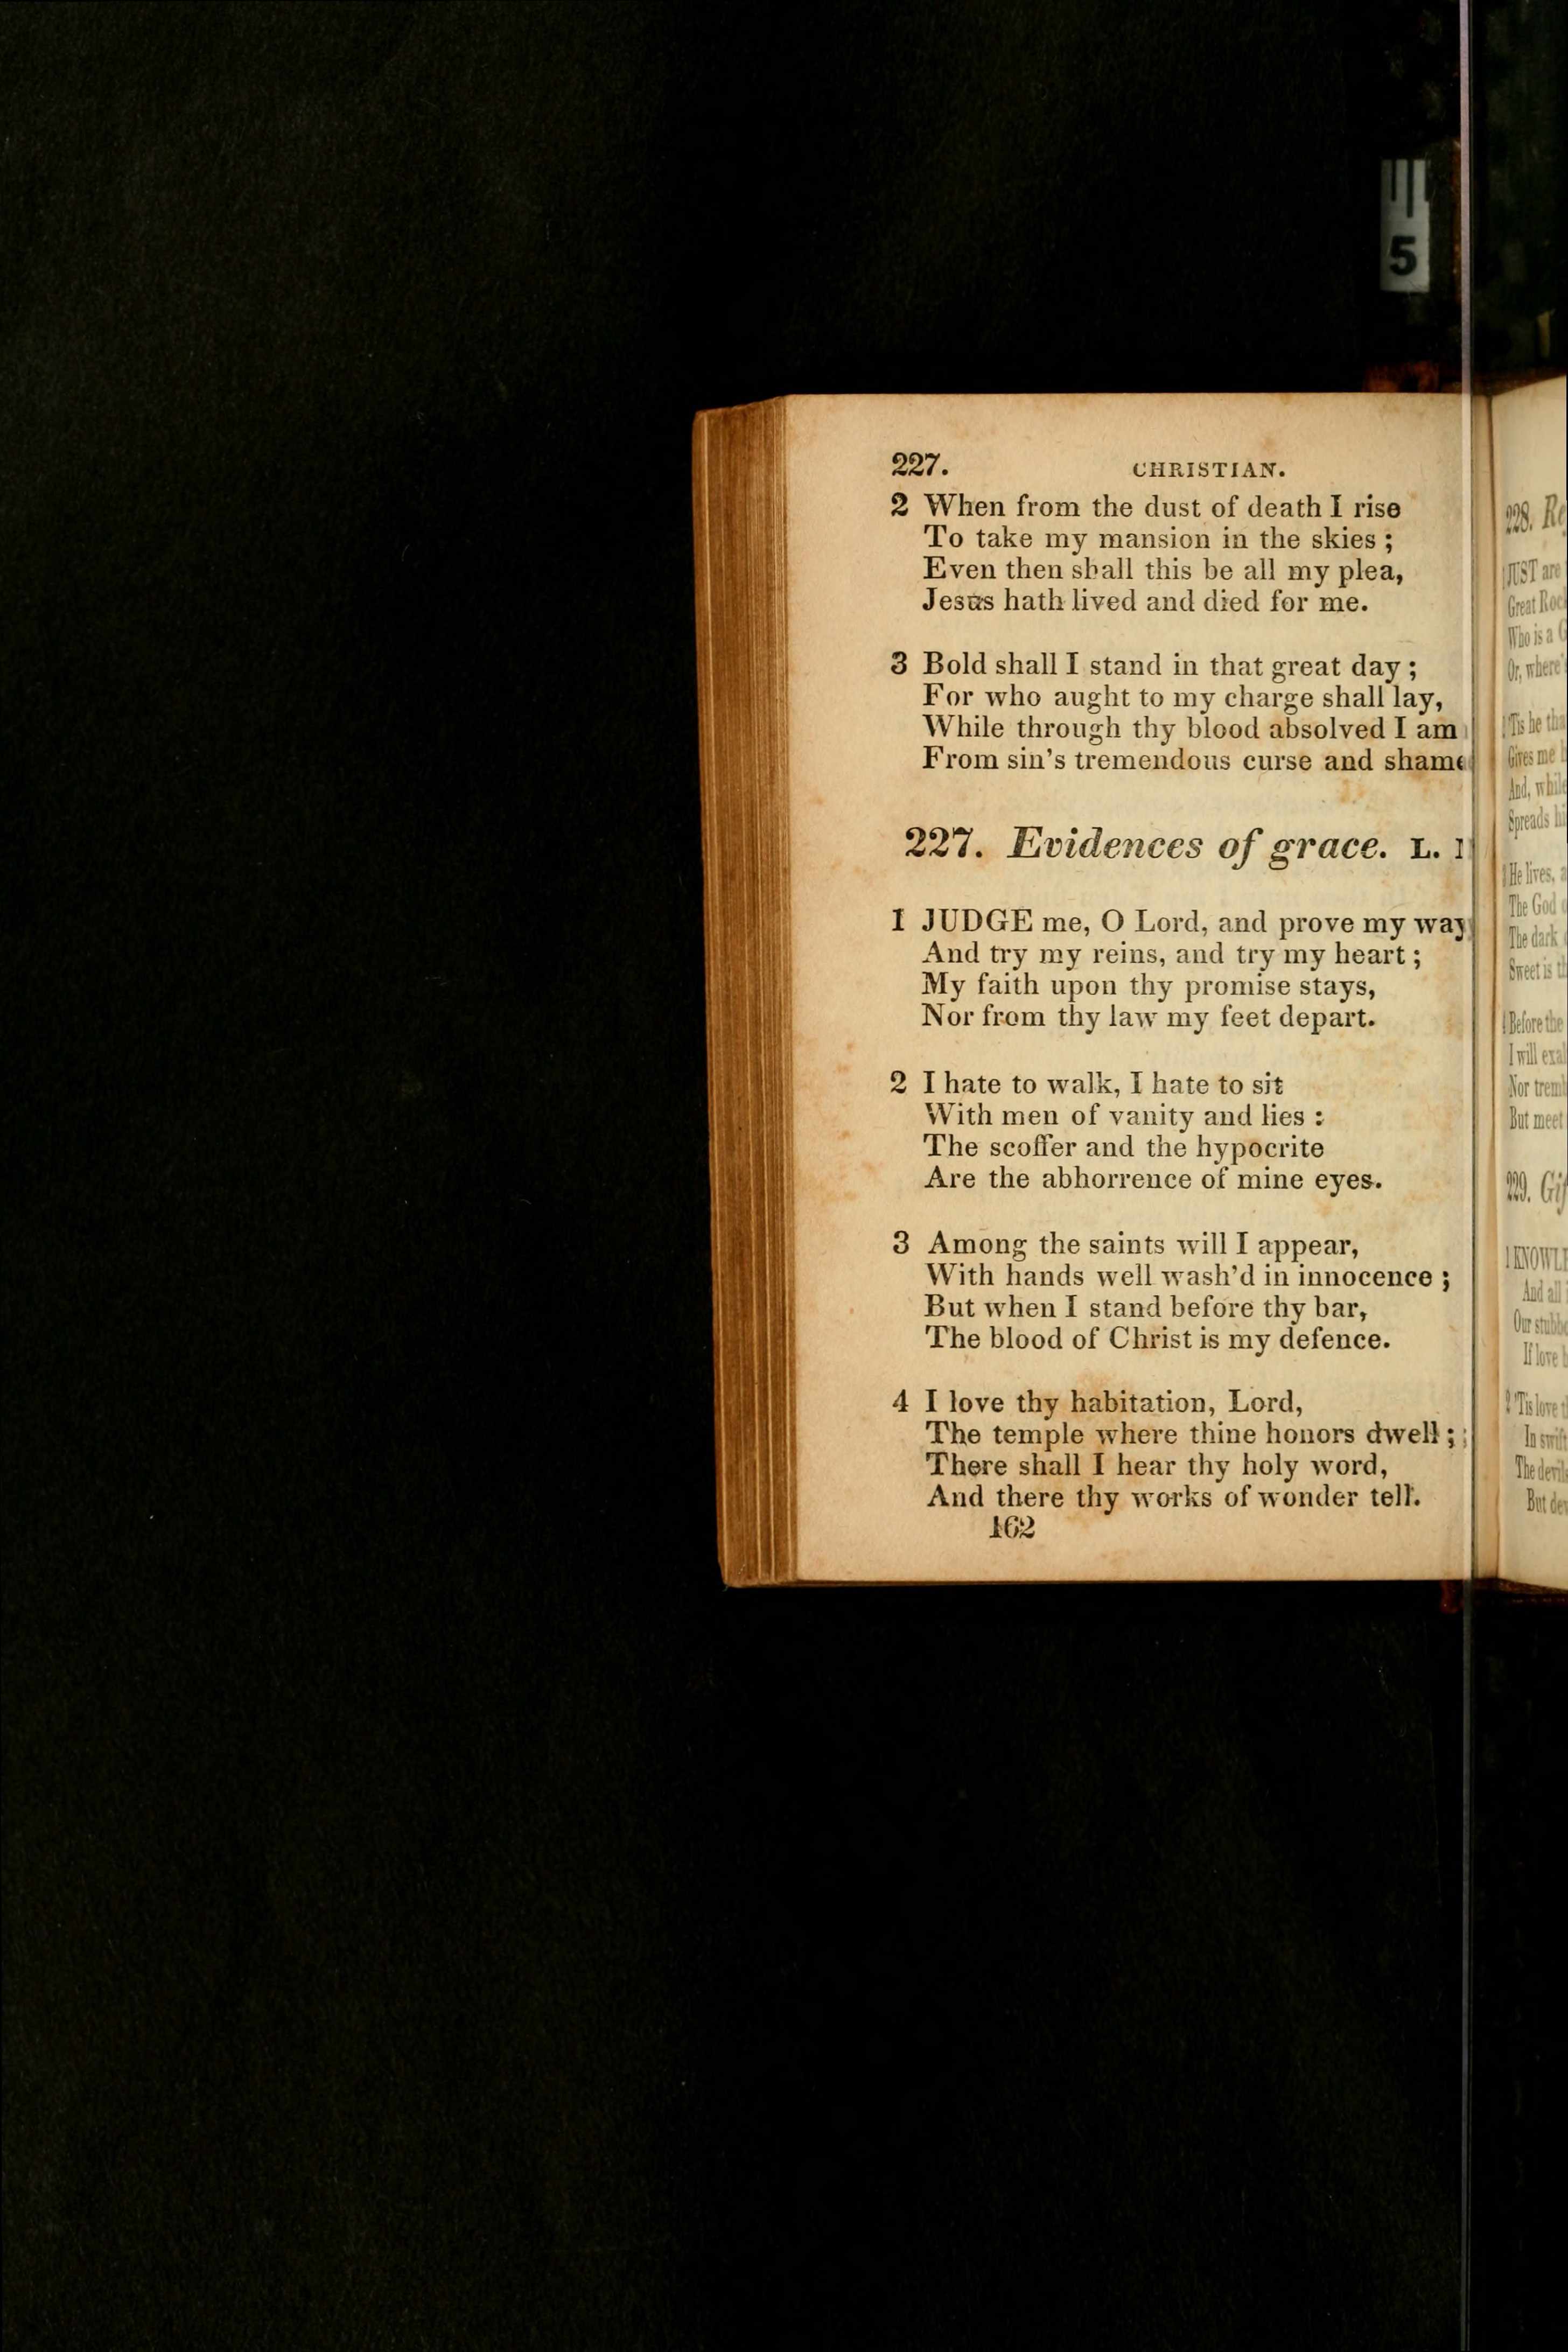 5
227. CHRISTIAN.
2 When from the dust of death I rise
To take my mansion in the skies ;
Even then shall this be all my plea,
Jesus hath lived and died for me.
3 Bold shall I stand in that great day ;
For who aught to my charge shall lay,
While through thy blood absolved I am
From sin's tremendous curse and
227. Evidences of grace. L.
1 JUDGE me, O Lord, and prove my
And try my reins, and try my heart ;
My faith upon thy promise stays,
Nor from thy law my feet depart.
2 I hate to walk, I hate to sit
With men of vanity and lies :
The scoffer and the hypocrite
Are the abhorrence of mine eyes.
3 Among the saints will I appear,
With hands well wash'd in innocence ;
But when I stand before thy bar,
The blood of Christ is my defence.
4 I love thy habitation, Lord,
The temple where thine honors dwell ;
There shall I hear thy holy word,
And there thy works of wonder tell.
162
228.
JUST are
Great
Who is a
Or, where
'Tis he
Gives me
And,
Spreads
He lives,
The God
The dark
Sweet is
Before the
I will
Nor
But meet
229.
And all
Our
If love
2 'Tis love
In
The
But